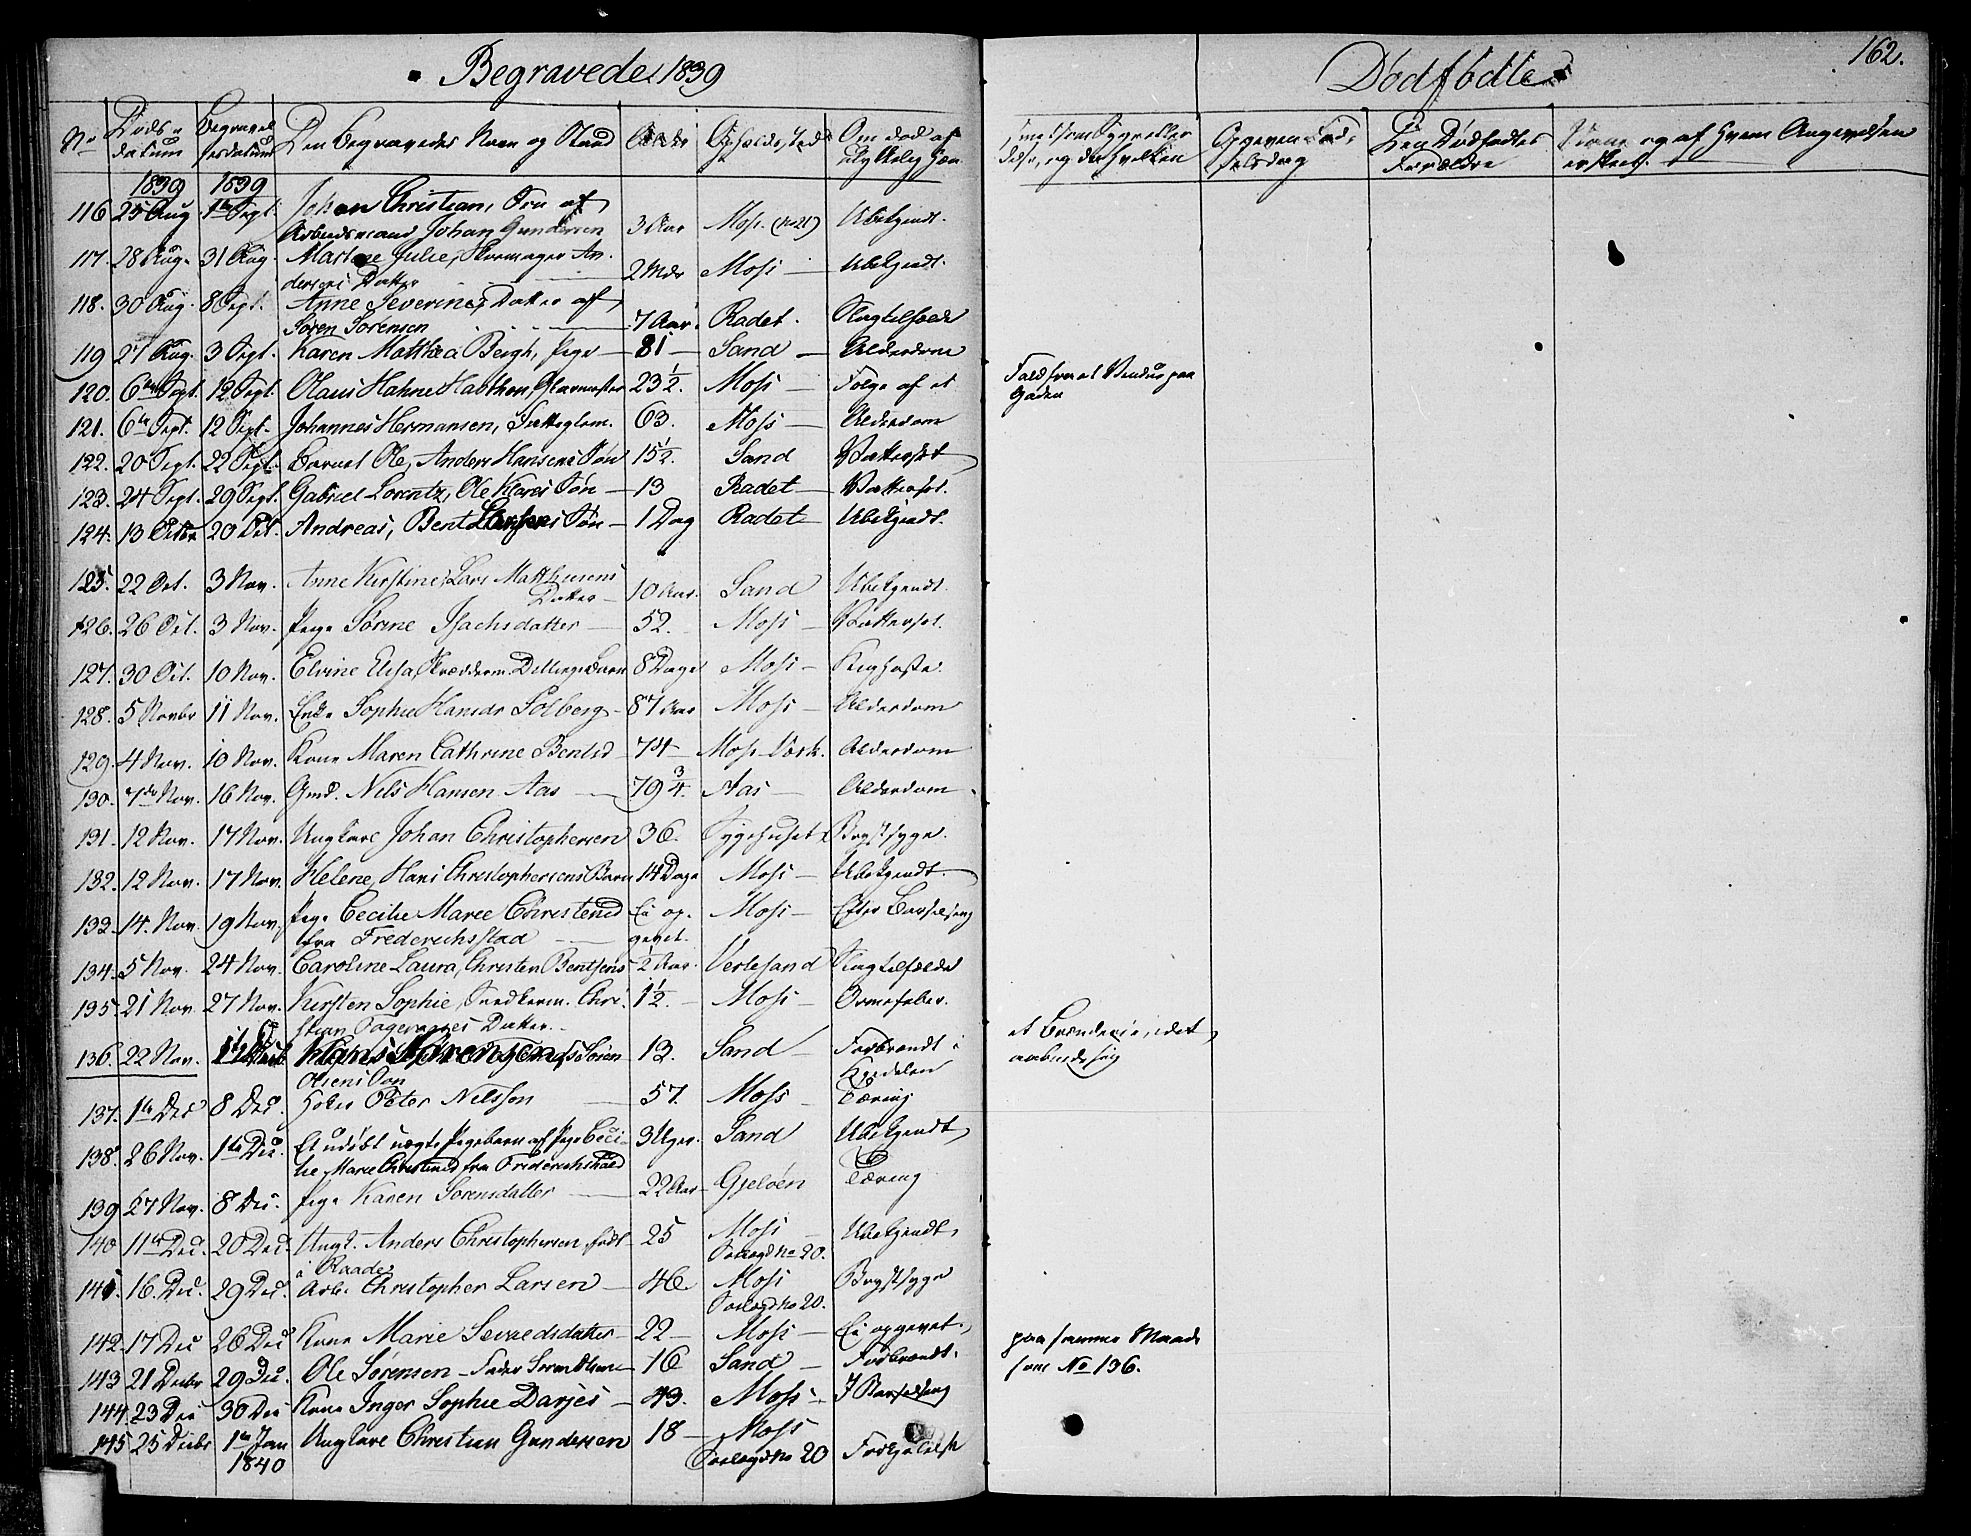 Begravede 1839
No Døds- datum Begravel- sesdatum Den Begravedes Navn og Stand Alder Opholdssted Om død af ulykkelig Hæn-
1839 1839
116 25 Aug 1ste Sept. Johan Christian, Søn af
Arbeidsmand Johan Gundersen 3 Aar Moss. Ubekjendt.
117. 28 Aug. 31 Aug. Julie, An-
dersens Datter 2 Mdr Moss — Ubekjendt.
118. 30 Aug. 8 Sept. Anne Severine, Datter af
Søren Sørensen 7 Aar Radet. Slagtilfælde
119 27 Aug. 3 Sept. Karen Matthea Bergh, Pige — 81 — Sand — Alderdom
120. 6te Sept. 12 Sept. Olaus Hahne 23 1/2. Moss — Følge af et
121. 6te Sept. 12 Sept. Johannes Hermansen, 63. Moss — Alderdom
122. 20 Sept. 22 Sept. Barnet Ole, Anders Hansens Søn 1 1/2. Sand
123. 24 Sept. 29 Sept. Gabriel Lorentz, Ole Søn — 13 Radet —
124. 13 Octbr 20 Oct. Andreas, Bent Larsens Søn — 1 Dag Radet — Ubekjendt.
125. 22 Oct. 3 Nov. Anne Kirstine, Lars Matthisens
Datter — 10 Aar. Sand Ubekjendt.
126. 26 Oct. 3 Nov. Pige Sørine Isachsdatter — 52. Moss —
127. 30 Oct. 10 Nov. Elvine Elisa, Skrædderm. Dillings Barn 8 Dage Moss — Kighoste.
128. 5 Novbr 11 Nov. Enke Sophie Hansdr Solberg — 87 Aar Moss — Alderdom
129. 4 Nov. 10 Nov. Kone Maren Cathrine Bentsd 74 — Moss Værk. Alderdom
130. 7de Nov. 16 Nov. Gmd. Nils Hansen Aas — 79 3/4. Aas — Alderdom
131. 12 Nov. 17 Nov. Ungkarl Johan Christophersen 36. Sygehuset Brystsyge.
132. 12 Nov. 17 Nov. Helene, Hans Christophersens Barn 14 Dage Moss — Ubekjendt.
133. 14. Nov. 19 Nov. Pige Cecilie Marie Christensd
fra Frederichsstad — Ei op-
givet. Moss — Efter Barselseng
134. 5 Nov. 24 Nov. Caroline Laura, Christen Bentsens 1/2 Aar. Verlesand Slagtilfælde
135. 21 Nov. 27 Nov. Kirsten Sophie, Snedkerm. Chri-
stian Datter. 1 1/2. — Moss — Ormefeber.
136. 22 Nov. Hans Sørensen, Søren
Olsens Søn 13. Sand — Forbrændt i
Kjedelen
137. 1te Dec 8 Dec. Peter Nilsson — 57. Moss — Tæring
138. 26 Nov. 1te Dec. Et udøbt uægte Pigebarn af Pige Ceci-
lie Marie Christensd fra Friderichshald 3 Uger. Sand Ubekjendt
139 27 Nov. 8 Dec. Pige Karen Sørensdatter — 22 Aar Gjeløen Tæring
140 11te Dec. 20 Dec. Ungk. Anders Christophersen, født
i Raade 25 Moss —
No 20. Ubekjendt
141. 16. Dec. 29 Dec. Arb. Christopher Larsen — 46 — Moss
No 20. Brystsyge
142. 17 Dec 26 Dec Kone Marie — 22 — Moss — Ei opgivet.
143 21 Decbr 29 Dec. Ole Sørensen — 16 Sand — Forbrændt.
144. 23 Dec 30 Dec Kone Inger Sophie Darjes — 43. Moss — I Barselseng
145 25 Decbr 1te Jan
1840 Ungkarl Christian Gundersen 18 — Moss
No 20 Forkjølelse
Dødfødte
162.
delse, og da hvilken Opgiven Fød-
selsdag Den Dødfødtes
Forældre Naar og af hvem Angivelsen
er skeet.
Fald fra et Vindue paa
Gaden
et Brænderie, idet
paa samme Maade
som No 136.